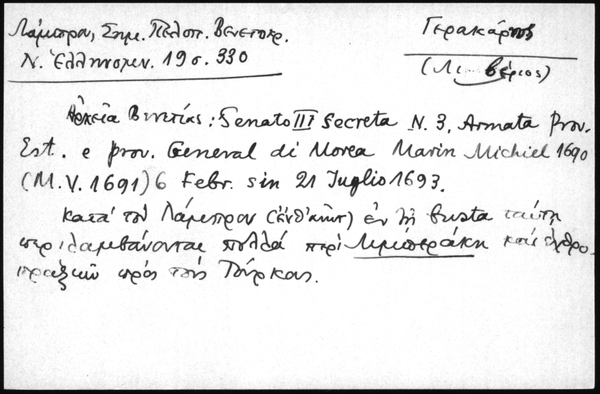 Λάμπρου, Σημ. Πελοπ. Βενετοκρ.
Ν. Ἑλληνομν. 19 σ. 330
Γερακάρης
(Λιμβέριος)
Ἀρχεῖα Βενετίας: Senato III Secreta N. 3, Armata Prov.
Est. e prov. General di Morea Marin Michiel 1690
(M.V. 1691) 6 Febr. sin 21 Juglio 1693.
κατὰ τὸν Λάμπρον ἐν τῇ busta ταύτῃ
περιλαμβάνονται πολλὰ περὶ Λιμπεράκη καὶ ἐχθρο
πραξιῶν πρὸς τοὺς Τούρκους.